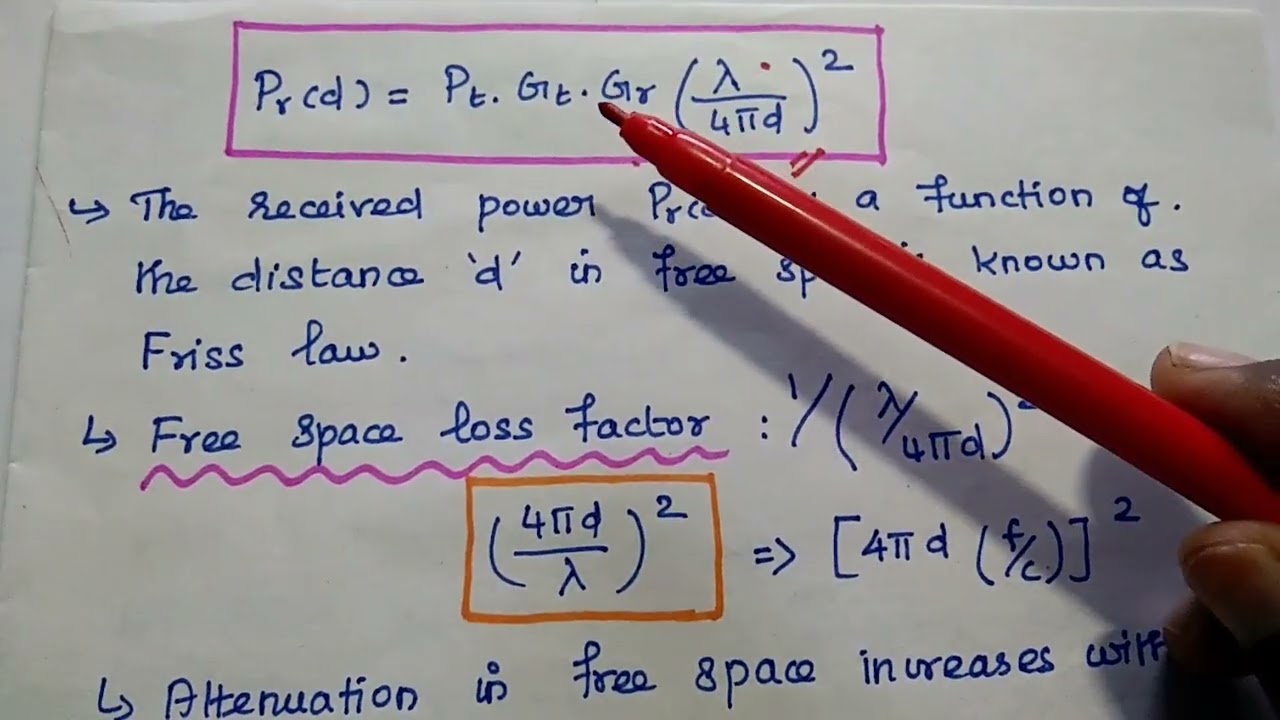 Pr(d) = Pt. Gt. Gr (λ/4πd)²
↳ The received power a function of.
the distance 'd' in free known as
Friss law.
↳ Free space loss factor : 1/(λ/4πd)²
(4πd/λ)² => [4πd (f/c)]²
↳ Attenuation in free space increases with